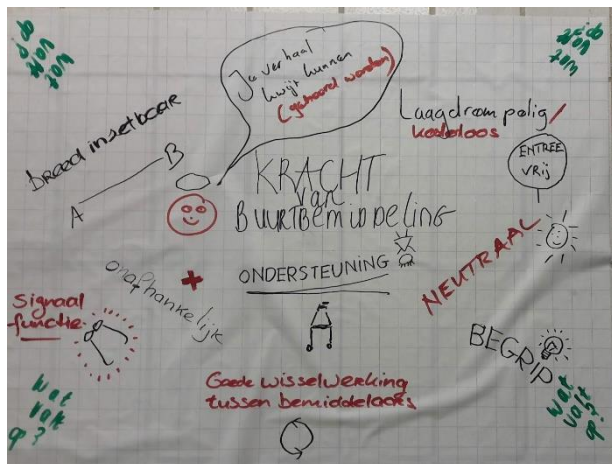 wat
valt
op?
wat
valt
op?
Je verhaal
kwijt kunnen
(gehoord worden)
Breed inzetbaar
A
B
Laagdrempelig /
kosteloos
ENTREE
VRIJ
KRACHT
van
BUURTBEMIDDELING
ONDERSTEUNING
onafhankelijk
+
NEUTRAAL
signaal
functie
BEGRIP
Goede wisselwerking
tussen bemiddelaars
wat
valt
op?
wat
valt
op?